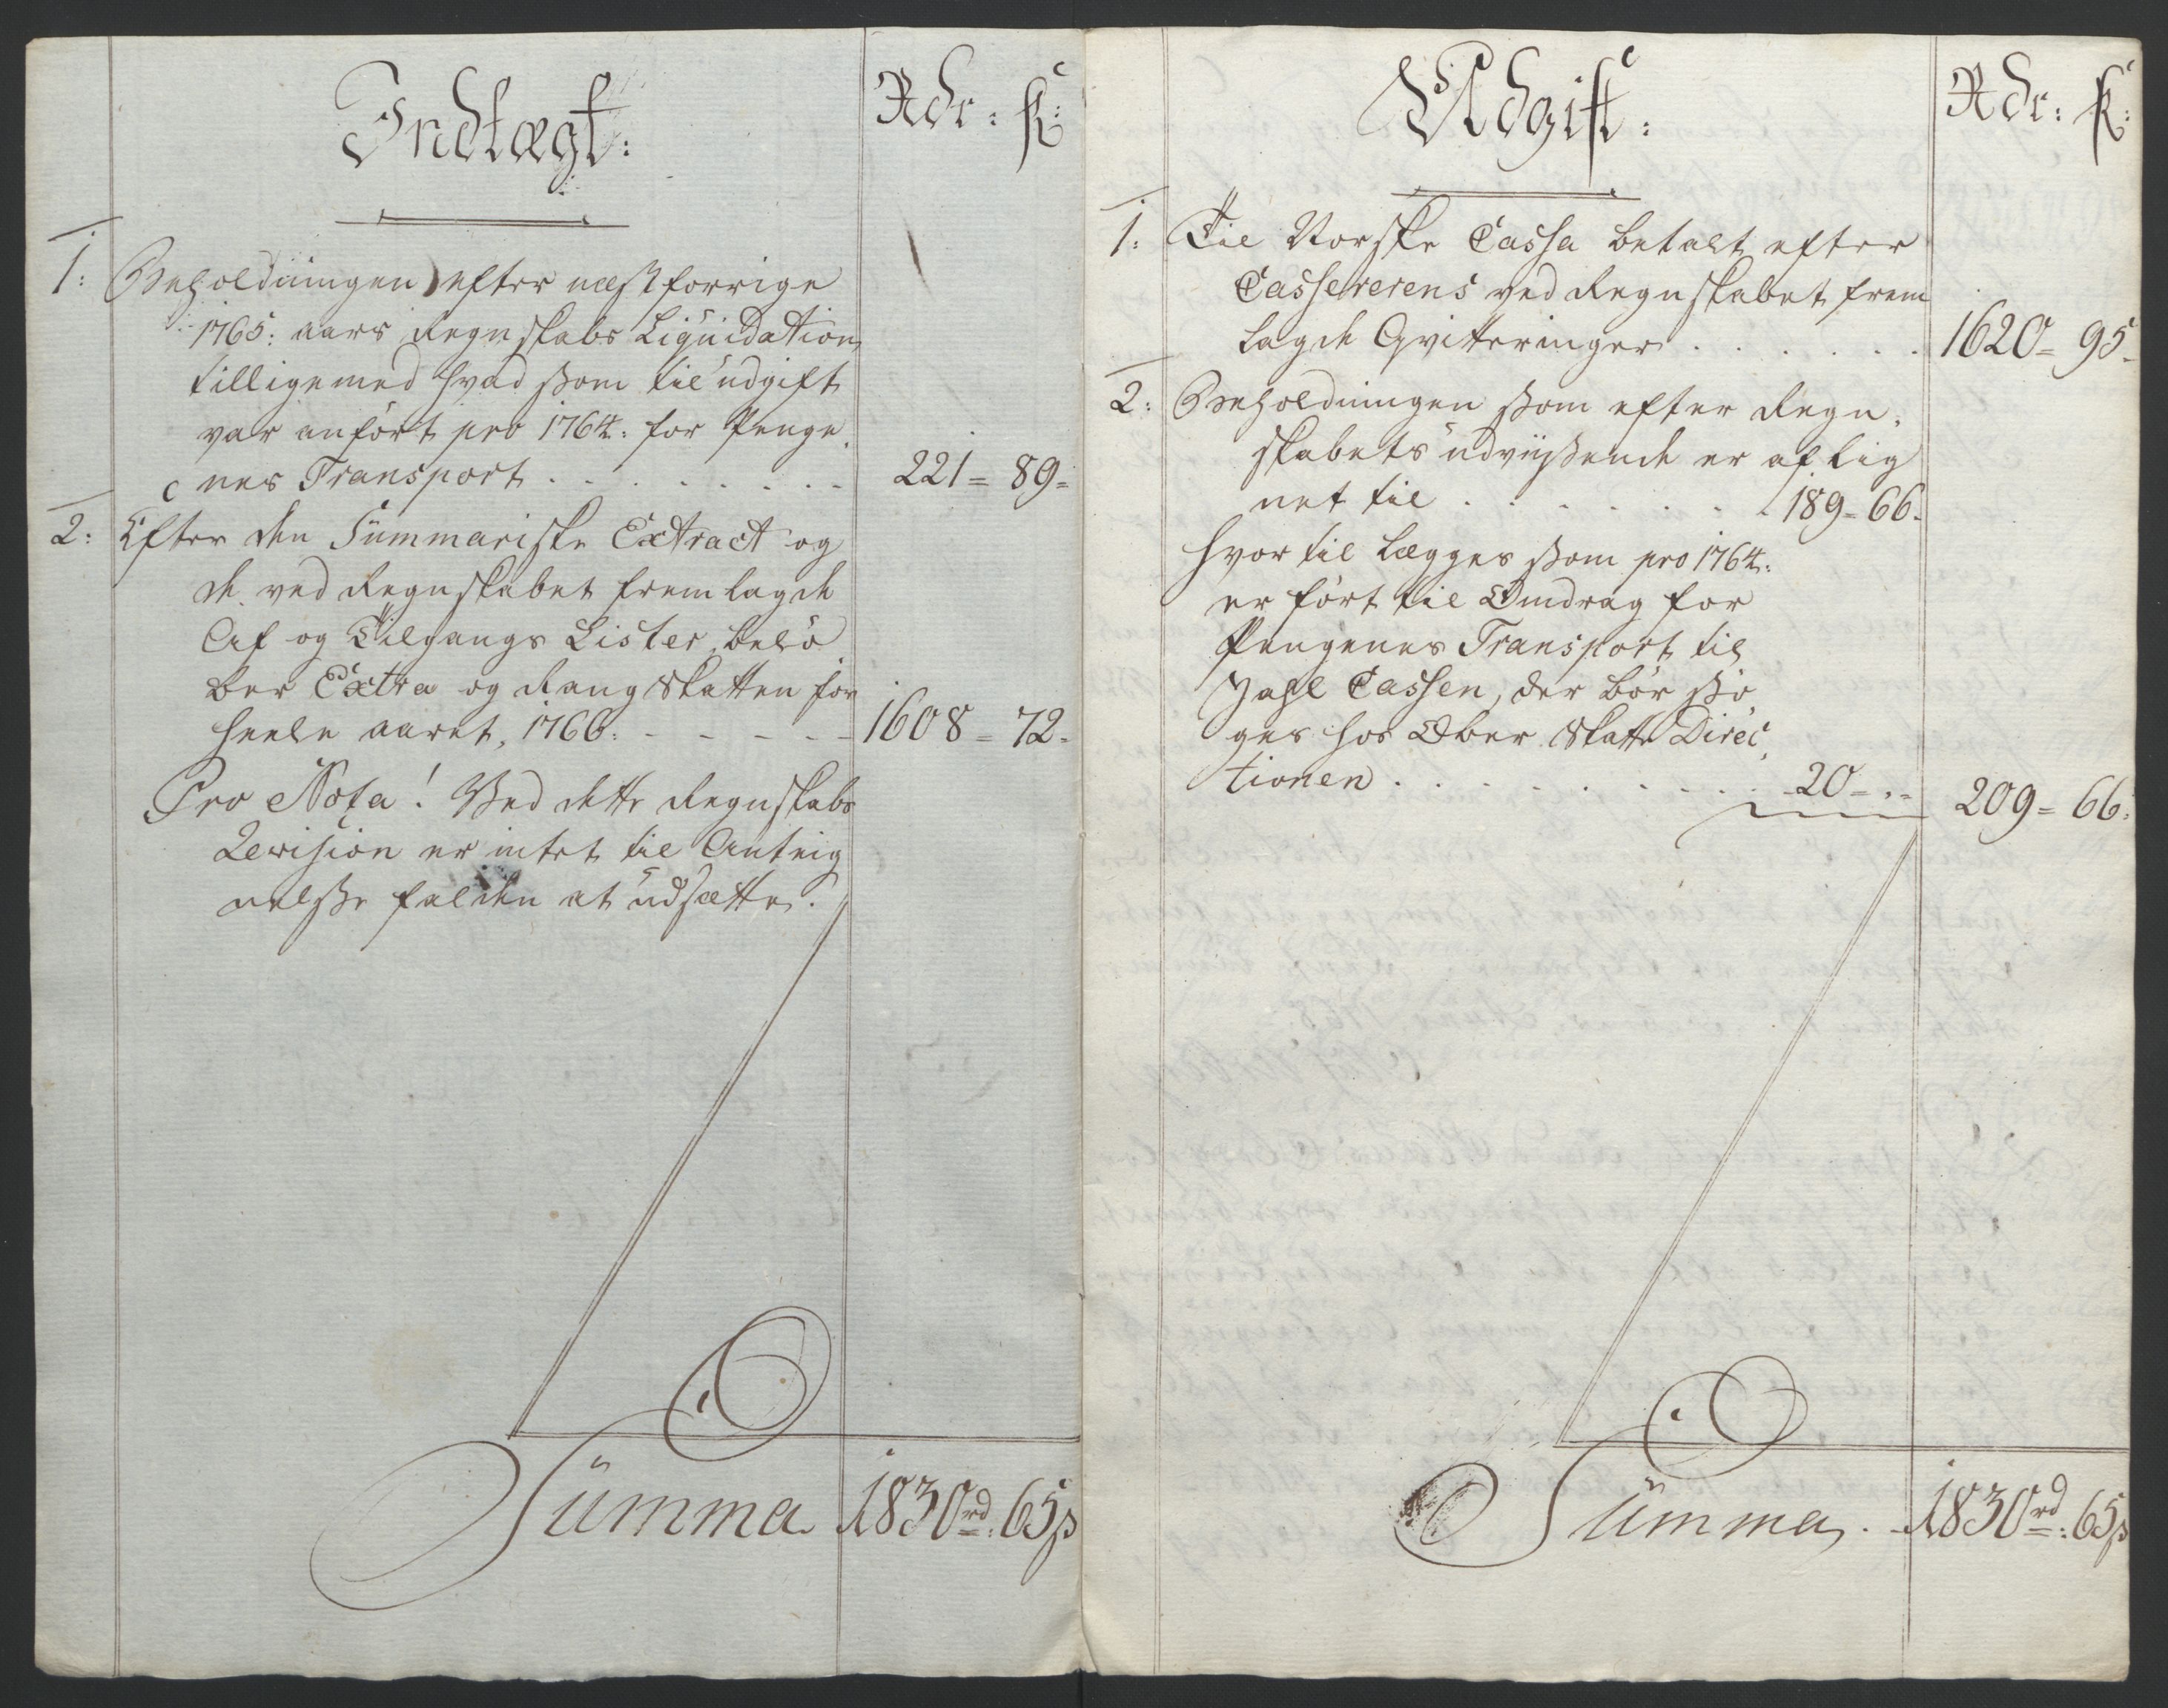 Indtægt:
Rdr: ß:
1: Beholdningen efter næstforrige
1765: aars Regnskabs Liqvidation
tilligemed hvad som til udgift
var anført pro 1764: for Penge
nes Transport . . . . . . . . 221 = 89 =
2: Efter den Summariske Extract og
de ved Regnskabet fremlagde
Af og Tilgangs Lister, belø
ber Extra og Rang Skatten for
heele aaret, 1766: - - - - - 1608 = 72 -
Pro Nota! Ved dette Regnskabs
Revision er intet til Anteig
nelse falden at udsætte.
Summa 1830rd: 65ß
Udgift:
Rdr: ß:
1: Til Norske Cassa betalt efter
Cassererens ved Regnskabet frem
lagde Qvitteringer . . . . . . 1620 = 95 -
2: Beholdningen som efter Regn-
skabets udviisende er aflig
net til . . . . . . . 189 = 66 -
hvor til lægges som pro 1764:
er ført til Omdrag for
Pengenes Transport til
Zahl Cassen, der bør sø
ges hos Ober Skatte Direc
tionen . . . . . . . . . 20 = " = 209 = 66:
Summa . - 1830rd: 65ß